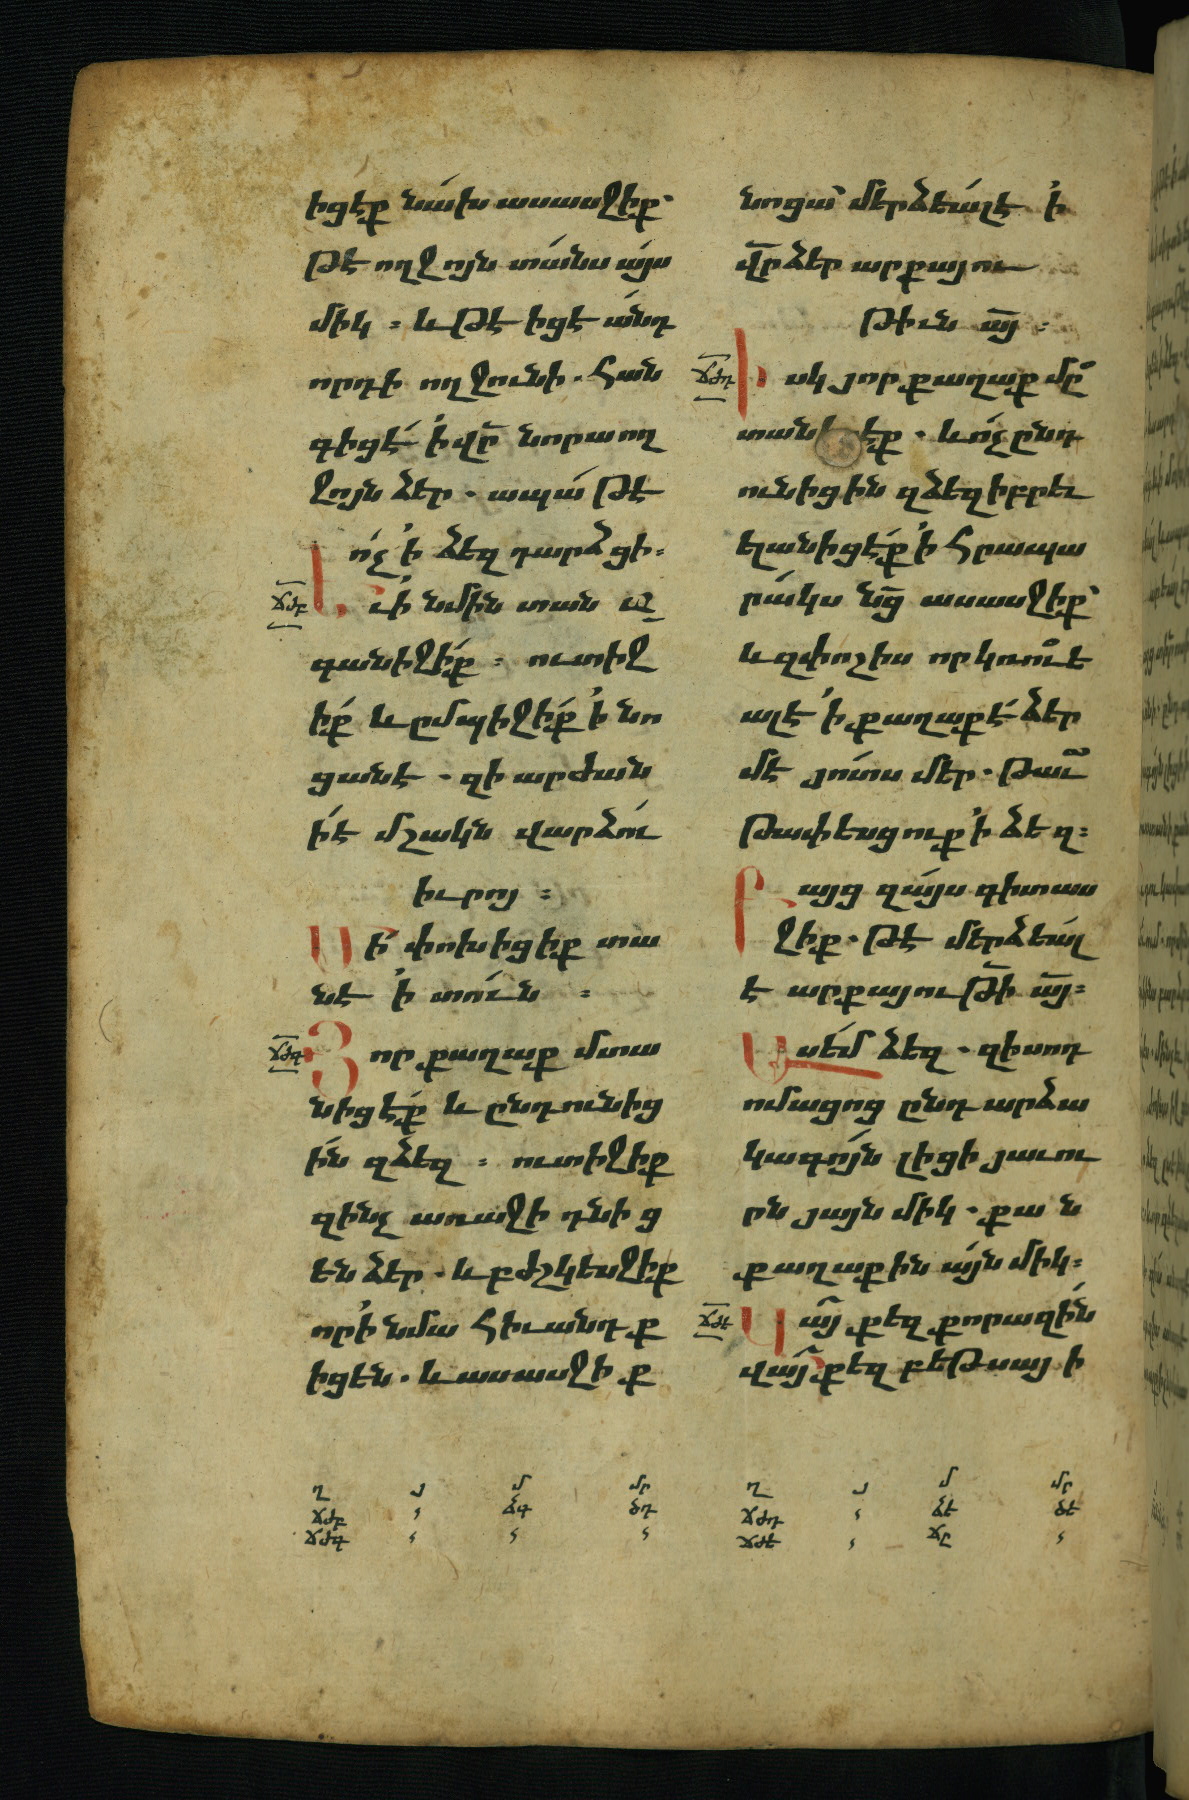 իցէք նախ ասասջիք՝
Թէ ողջոյն տանս այս
միկ ։ և Թէ իցէ անդ
որդի ողջունի . հան
գիցէ ՚ի վր նորա ող
ջոյն ձեր . ապա Թէ
ոչ ՚ի ձեզ դարձցի ։
ճժբ Ի ՚ի նմին տան ա
գանիջիք ։ ուտիջ
իք և ըմպիջիք ՚ի նո
ցանէ . զի արժան
ի է մշակն վարձու
իւրոյ ։
Մի փոխիցիք տա
նէ ՚ի տուն ։
ճժգ Յոր քաղաք մտա
նիցէք և ընդունից
ին զձեզ ։ ուտիջիք
զինչ առաջի դնից
են ձեր . և բժշկեսջիք
որ ՚ի նմա հիւանդք
իցեն . և ասասջիք
նոցա՝ մերձեալ է ՚ի
վր ձեր արքայու
Թիւն այ ։
ճժդ Իսկ յոր քաղաք մը
տանիցէք . և ոչ ընդ
ունիցին զձեզ իբրև
ելանիցէք ՚ի հրապա
րակս նց ասասջիք՝
և զփոշիս որ կռուե
ալ է ՚ի քաղաքէ ձեր
մէ յոտս մեր . Թաւ
Թափեսցուք ՚ի ձեզ ։
Բայց զայս գիտաս
ջիք . Թէ մերձեալ
է արքայուԹի այ ։
Ասեմ ձեզ . զի սոդ
ոմացոց ընդ արձա
կագոյն լիցի յաւու
րն յայնմիկ . քան
քաղաքին այնմիկ ։
ճժե Վայ քեզ քորազին
վայ քեզ բեԹսայի
ղ յ մ մր
ճժբ ՙ ձգ ծդ
ճժգ ՙ ՙ ՙ
ղ յ մ մր
ճժդ ՙ ձէ ծե
ճժե ՙ ճը ՙ